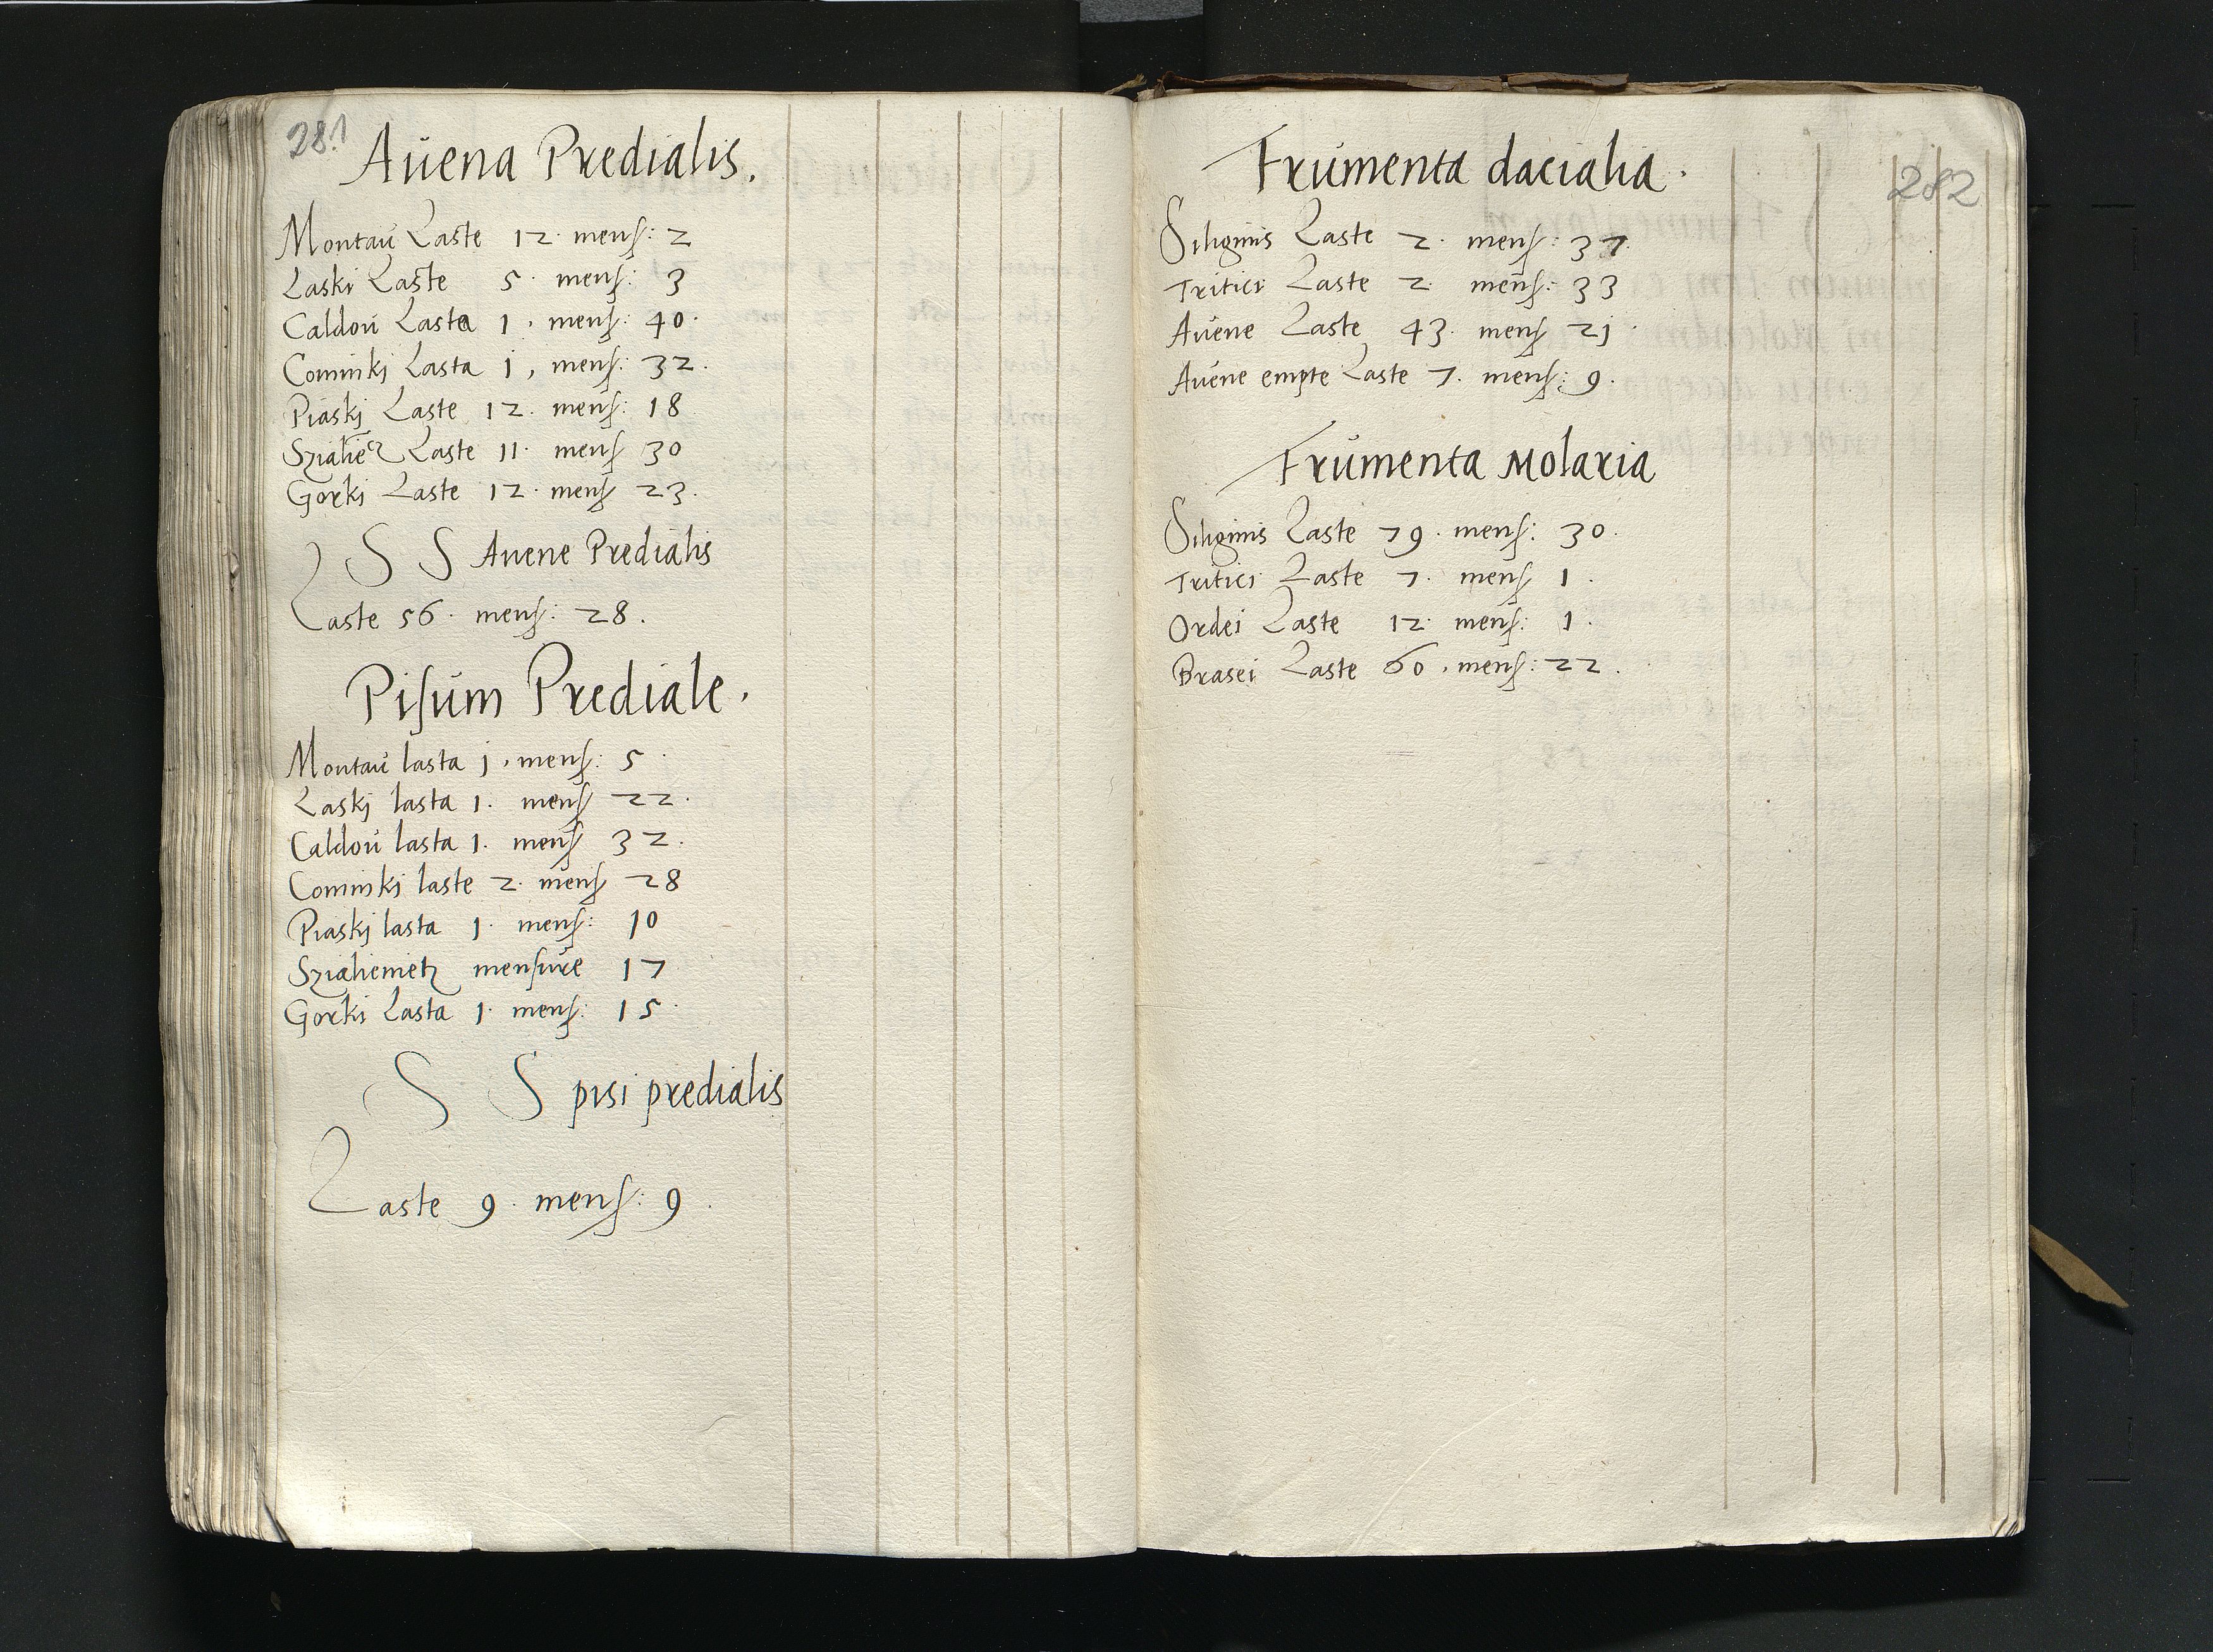 281
Auena Predialis.
Montaŭ Laste 12. mens: 2
Laski Laste 5. mens: 3
Caldoŭ Lasta 1. mens: 40.
Cominkj Lasta j, mens: 32.
Piaskj Laste 12. mens: 18
Laste 11. mens 30
Gorki Laste 12. mens 23.
S S Auene Predialis
Laste 56. mens: 28.
Pisŭm Prediale.
Montaŭ lasta j. mens: 5
Laskj lasta 1. mens 22.
Caldoŭ lasta 1. mens 32.
Cominkj laste 2. mens 28
Piaskj lasta 1. mens: 10
Szialienietz mensŭre 17
Gorki Lasta 1. mens: 15.
S S pisi predialis
Laste 9. mens: 9.
282
Frŭmenta dacialia.
Siliginis Laste 2. mens: 37.
Tritici Laste 2. mens: 33
Aŭene Laste 43. mens 2j.
Aŭene empte Laste 7. mens: 9.
Frŭmenta Molaria
Siliginis Laste 79. mens: 30.
Tritici Laste 7. mens 1.
Ordei Laste 12. mens: 1.
Brasei Laste 60. mens: 22.